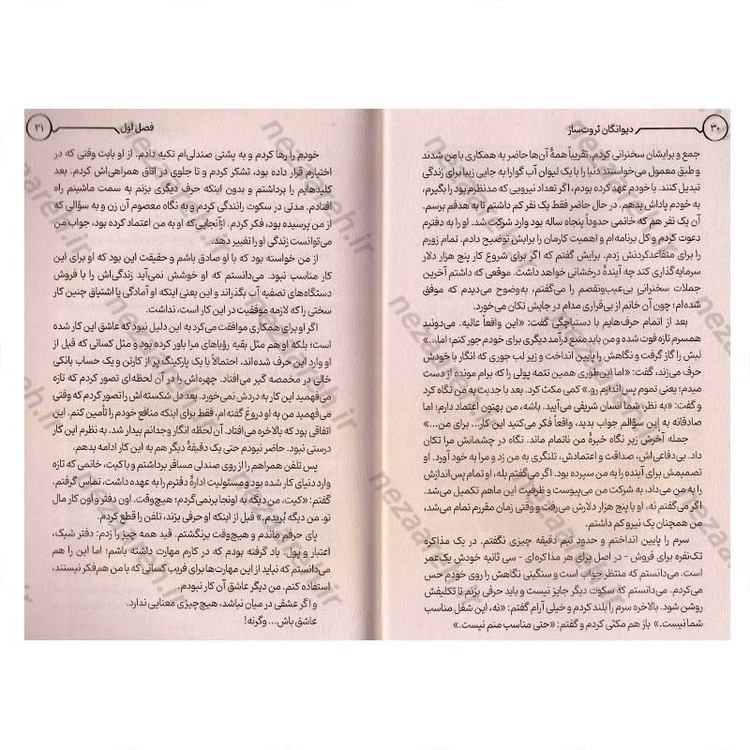 ۳۰ دیوانگان ثروت‌ساز
جمع و برایشان سخنرانی کردم. تقریباً همهٔ آن‌ها حاضر به همکاری با من شدند
و طبق معمول می‌خواستند دنیا را با یک لیوان آب گوارا به جایی زیبا برای زندگی
تبدیل کنند. با خودم عهد کرده بودم، اگر تعداد نیرویی که مدنظرم بود را بگیرم،
به خودم پاداش بدهم. در حال حاضر فقط یک نفر کم داشتم تا به هدفم برسم.
آن یک نفر هم که خانمی حدوداً پنجاه ساله بود وارد شرکت شد. او را به دفترم
دعوت کردم و کل برنامه‌ام و اهمیت کارمان را برایش توضیح دادم. تمام زورم
را برای متقاعدکردنش زدم. برایش گفتم که اگر برای شروع کار پنج هزار دلار
سرمایه‌گذاری کند چه آیندهٔ درخشانی خواهد داشت. موقعی که داشتم آخرین
جملات سخنرانی بی‌عیب‌ونقصم را می‌گفتم، به‌وضوح می‌دیدم که موفق
شده‌ام؛ چون آن خانم از بی‌قراری مدام در جایش تکان می‌خورد.
بعد از اتمام حرف‌هایم با دستپاچگی گفت: «این واقعاً عالیه. می‌دونید
همسرم تازه فوت شده و من باید منبع درآمد دیگری برای خودم جور کنم؛ اما...»
لبش را گاز گرفت و نگاهش را پایین انداخت و زیر لب جوری که انگار با خودش
حرف می‌زند، گفت: «اما این‌طوری همین تتمه پولی را که برام مونده از دست
میدم؛ یعنی تموم پس‌اندازم رو.» کمی مکث کرد. بعد با جدیت به من نگاه کرد
و گفت: «به نظر، شما انسان شریفی می‌آیید. باشه، من بهتون اعتماد دارم؛ اما
صادقانه به این سؤالم جواب بدید، واقعاً فکر می‌کنید این کار... برای من...»
جمله آخرش زیر نگاه خیرهٔ من ناتمام ماند. نگاه در چشمانش مرا تکان
داد. بی‌دفاعی‌اش، صداقت و اعتمادش، تلنگری به من زد و مرا به خود آورد. او
تصمیمش برای آینده را به من سپرده بود. اگر می‌گفتم بله، او تمام پس‌اندازش
را به من می‌داد، به شرکت من می‌پیوست و ظرفیت این ماهم تکمیل می‌شد.
اگر می‌گفتم نه، او با پنج هزار دلارش می‌رفت و وقتی زمان مقررم تمام می‌شد،
من همچنان یک نیرو کم داشتم.
سرم را پایین انداختم و حدود نیم دقیقه چیزی نگفتم. در یک مذاکره
تک‌نفره برای فروش - در اصل برای هر مذاکره‌ای - سی ثانیه خودش یک عمر
است. می‌دانستم که منتظر جواب است و سنگینی نگاهش را روی خودم حس
می‌کردم. می‌دانستم که سکوت دیگر جایز نیست و باید حرفی بزنم تا تکلیفش
روشن شود. بالاخره سرم را بلند کردم و خیلی آرام گفتم: «نه، این شغل مناسب
شما نیست.» باز هم مکثی کردم و گفتم: «حتی مناسب منم نیست.»
فصل اول ۳۱
خودم را رها کردم و به پشتی صندلی‌ام تکیه دادم. از او بابت وقتی که در
اختیارم قرار داده بود، تشکر کردم و تا جلوی در اتاق همراهی‌اش کردم. بعد
کلیدهایم را برداشتم و بدون اینکه حرف دیگری بزنم به سمت ماشینم راه
افتادم. مدتی در سکوت رانندگی کردم و به نگاه معصوم آن زن و به سؤالی که
از من پرسیده بود، فکر کردم. ازآنجایی که او به من اعتماد کرده بود، جواب من
می‌توانست زندگی او را تغییر دهد.
از من خواسته بود که با او صادق باشم و حقیقت این بود که او برای این
کار مناسب نبود. می‌دانستم که او خوشش نمی‌آید زندگی‌اش را با فروش
دستگاه‌های تصفیه آب بگذراند و این یعنی اینکه او آمادگی یا اشتیاق چنین کار
سختی را که لازمه موفقیت در این کار است، نداشت.
اگر او برای همکاری موافقت می‌کرد به این دلیل نبود که عاشق این کار شده
است؛ بلکه او هم مثل بقیه رؤیاهای مرا باور کرده بود و مثل کسانی که قبل از
او وارد این حرف شده‌اند، احتمالاً با یک پارکینگ پر از کارتن و یک حساب بانکی
خالی در مخمصه گیر می‌افتاد. چهره‌اش را در آن لحظه‌ای تصور کردم که تازه
می‌فهمید این کار به دردش نمی‌خورد. بعد دل شکسته‌اش را تصور کردم که وقتی
می‌فهمد من به او دروغ گفته ام، فقط برای اینکه منافع خودم را تأمین کنم. این
اتفاقی بود که بالاخره می‌افتاد. آن لحظه انگار وجدانم بیدار شد. به نظرم این کار
درستی نبود. حاضر نبودم حتی یک دقیقهٔ دیگر هم به این کار ادامه بدهم.
پس تلفن همراهم را از روی صندلی مسافر برداشتم و با کیت، خانمی که تازه
وارد دنیای کار شده بود و مسئولیت ادارهٔ دفترم را به عهده داشت، تماس گرفتم.
گفتم: «کیت، من دیگه به اونجا برنمی‌گردم؛ هیچ‌وقت. اون دفتر و اون کار مال
تو. من دیگه بُریدم.» قبل از اینکه او حرفی بزند، تلفن را قطع کردم.
پای حرفم ماندم و هیچ‌وقت برنگشتم. قید همه چیز را زدم: دفتر شیک،
اعتبار و پول. یاد گرفته بودم که در کارم مهارت داشته باشم؛ اما این را هم
می‌دانستم که نباید از این مهارت‌ها برای فریب کسانی که با من هم‌فکر نیستند،
استفاده کنم. من دیگر عاشق آن کار نبودم.
و اگر عشقی در میان نباشد، هیچ‌چیزی معنایی ندارد.
عاشق باش... وگرنه!
nezaareh.ir